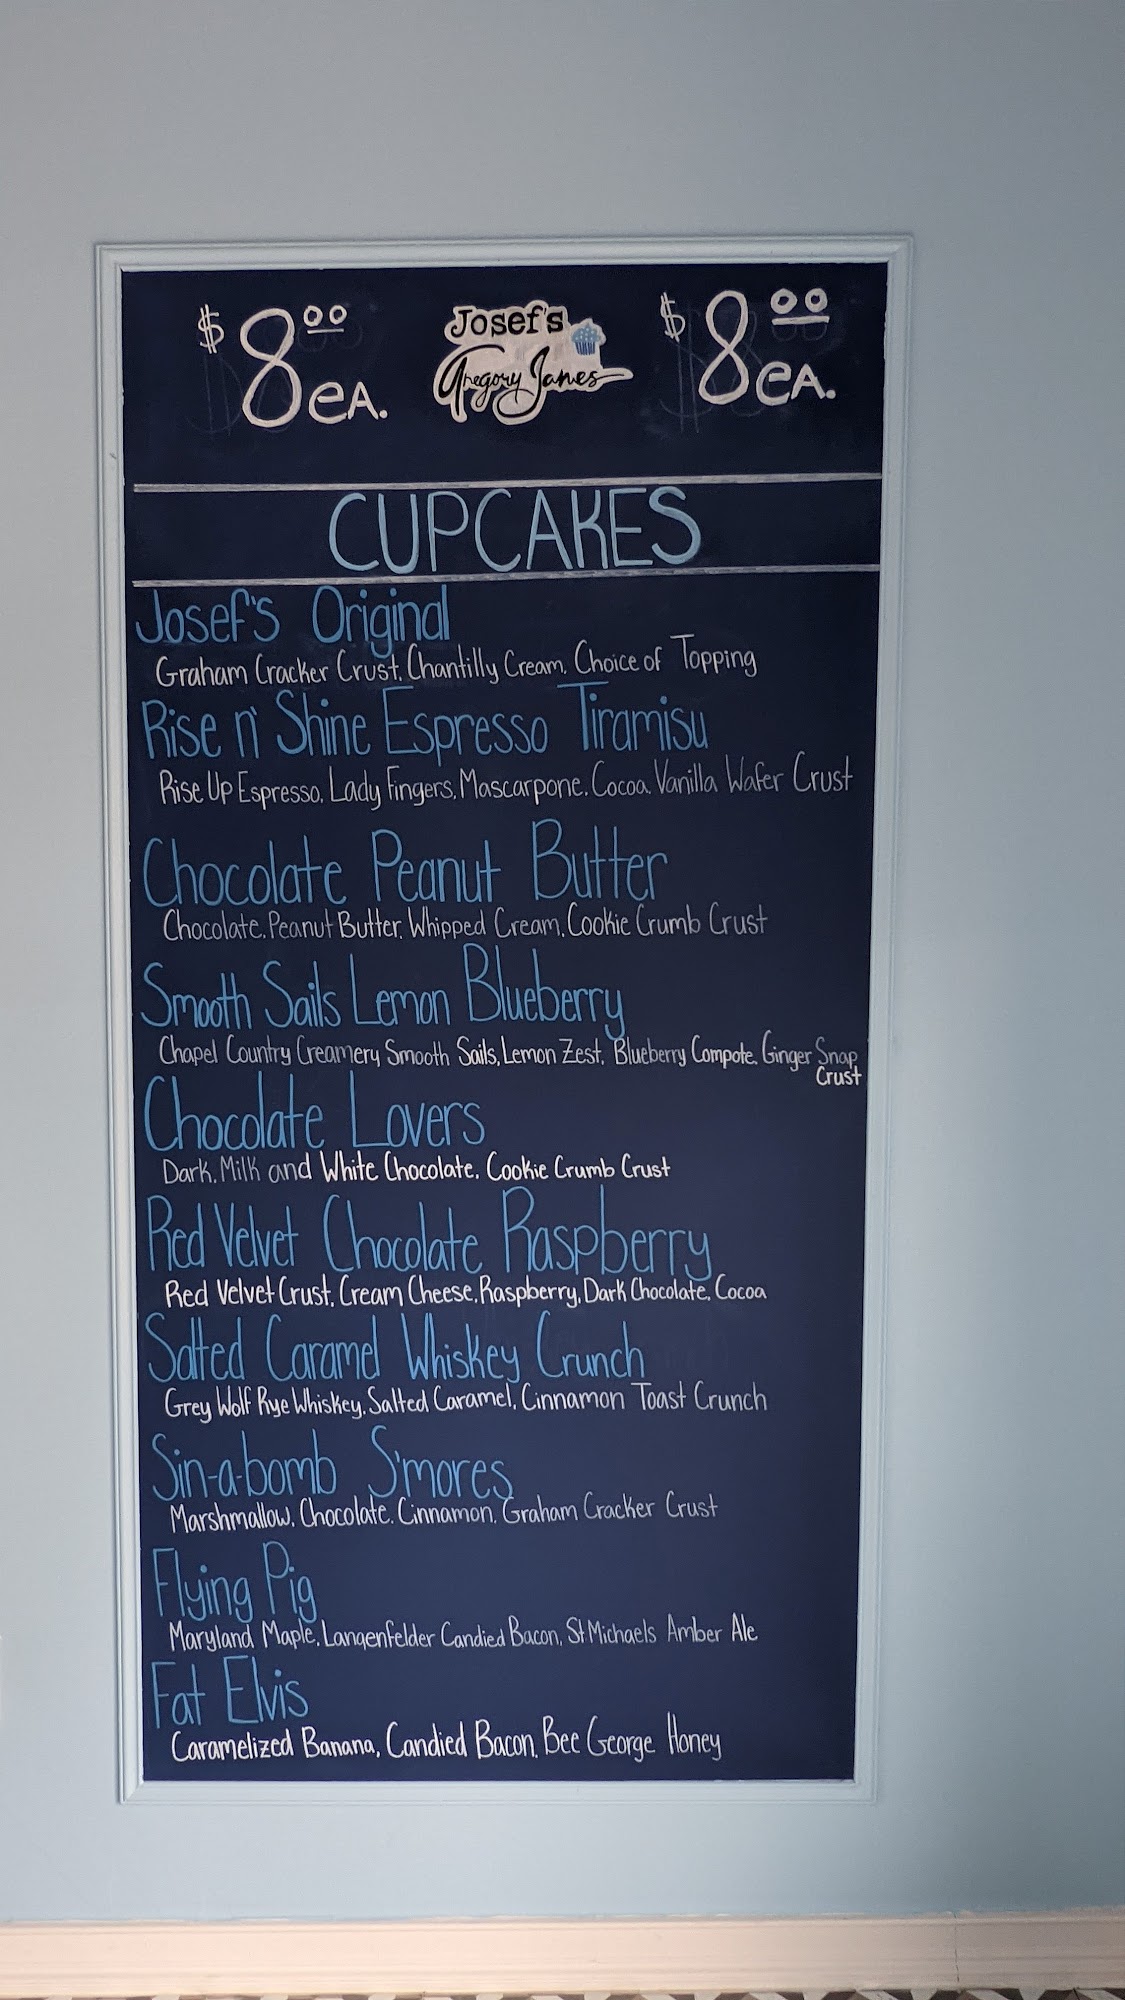 $8.00 ea.
Josef's
Gregory James
$8.00 ea.
CUPCAKES
Josef's Original
Graham Cracker Crust, Chantilly Cream, Choice of Topping
Rise n' Shine Espresso Tiramisu
Rise Up Espresso, Lady Fingers, Mascarpone, Cocoa, Vanilla Wafer Crust
Chocolate Peanut Butter
Chocolate, Peanut Butter, Whipped Cream, Cookie Crumb Crust
Smooth Sails Lemon Blueberry
Chapel Country Creamery Smooth Sails, Lemon Zest, Blueberry Compote, Ginger Snap
Crust
Chocolate Lovers
Dark, Milk and White Chocolate, Cookie Crumb Crust
Red Velvet Chocolate Raspberry
Red Velvet Crust, Cream Cheese, Raspberry, Dark Chocolate, Cocoa
Salted Caramel Whiskey Crunch
Grey Wolf Rye Whiskey, Salted Caramel, Cinnamon Toast Crunch
Sin-a-bomb S'mores
Marshmallow, Chocolate, Cinnamon, Graham Cracker Crust
Flying Pig
Maryland Maple, Langenfelder Candied Bacon, St Michaels Amber Ale
Fat Elvis
Caramelized Banana, Candied Bacon, Bee George Honey